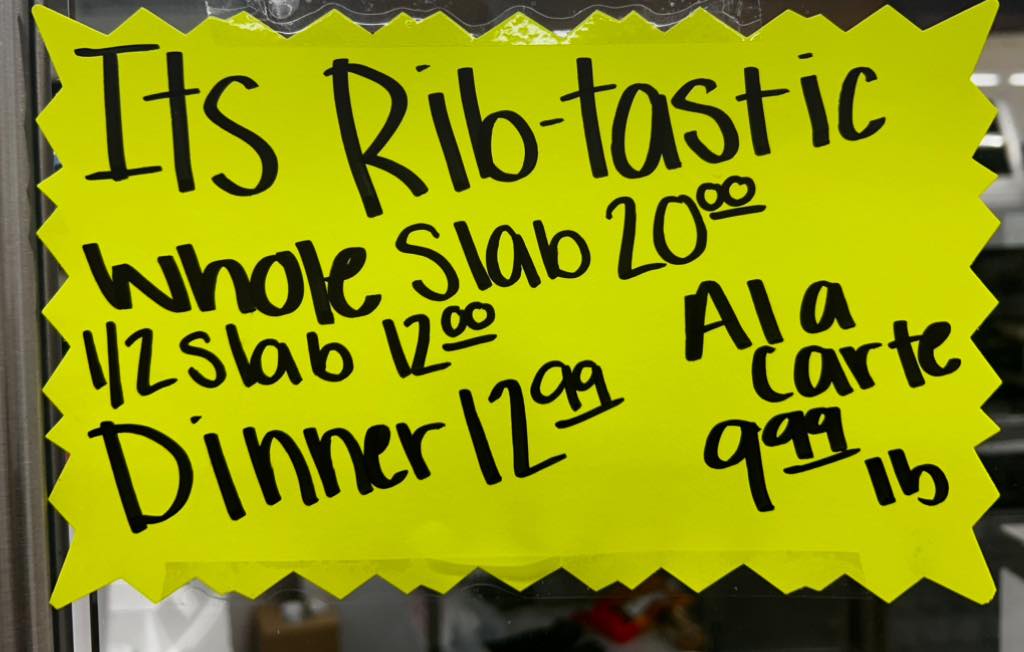 Its Rib-tastic
Whole Slab 20.00
1/2 Slab 12.00
Dinner 12.99
Ala
carte
9.99
lb